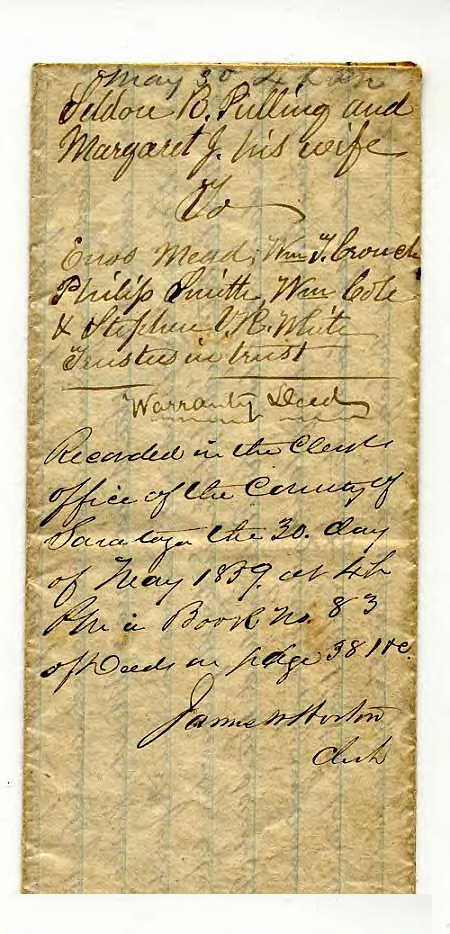 May 30 4 h Pm
Seldon B. Pulling and
Margaret J. his wife
To
Enos Mead, Wm T. Crouch
Philip Smith, Wm Cole
& Stephen V.R. White
Trustees in trust
Warranty Deed
Recorded in the Clerks
office of the County of
Saratoga the 30. day
of May 1859. at 4 h
Pm in Book No. 83
of Deeds on page 381 &c.
James W Horton
Clerk